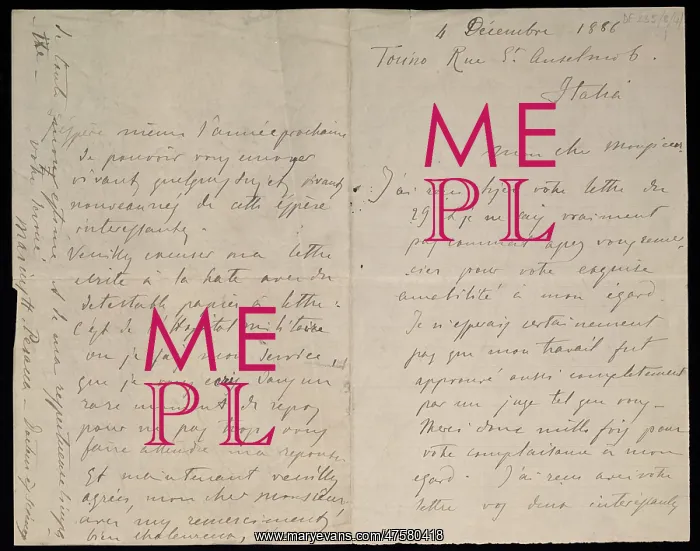 4 Décembre 1886
Torino Rue St. Anselmo 6.
Italia
mon cher monsieur
J'ai reçu hier vôtre lettre du
29 et je ne sais vraiment
pas comment assez vous remer-
cier pour votre exquise
amabilité à mon égard.
Je n'espérais certainement
pas que mon travail fut
approuvé aussi complètement
par un juge tel que vous.
Merci donc mille fois pour
votre complaisance à mon
égard. J'ai reçu avec votre
lettre vos deux interessants
espère même l'année prochaine
de pouvoir vous envoyer
vivant quelques sujets vivants
nouveaux nés de cette espèce
interessante.
Veuillez excuser ma lettre
écrite à la hate avec du
detestable papier à lettre:
C'est de l'Hopital militaire
ou je fais mon service
que je vous ecris dans un
rare moment de repos
pour ne pas trop vous
faire attendre ma reponse
Et maintenant veuillez
agréer, mon cher monsieur
avec mes remerciments
bien chaleureux,
de toute mon estime et de ma respectueuse
votre devoué
ME
PL
ME
PL
www.maryevans.com/47580418